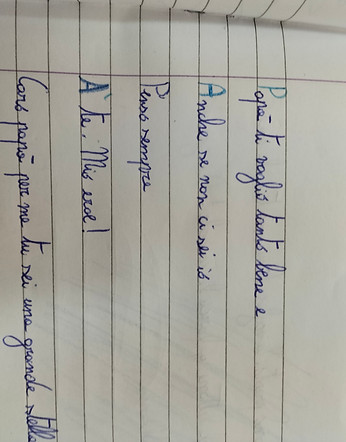 Papà ti voglio tanto bene e
Anche se non ci sei io
Penso sempre
A te. Mio eroe!
Caro papà per me tu sei una grande stella